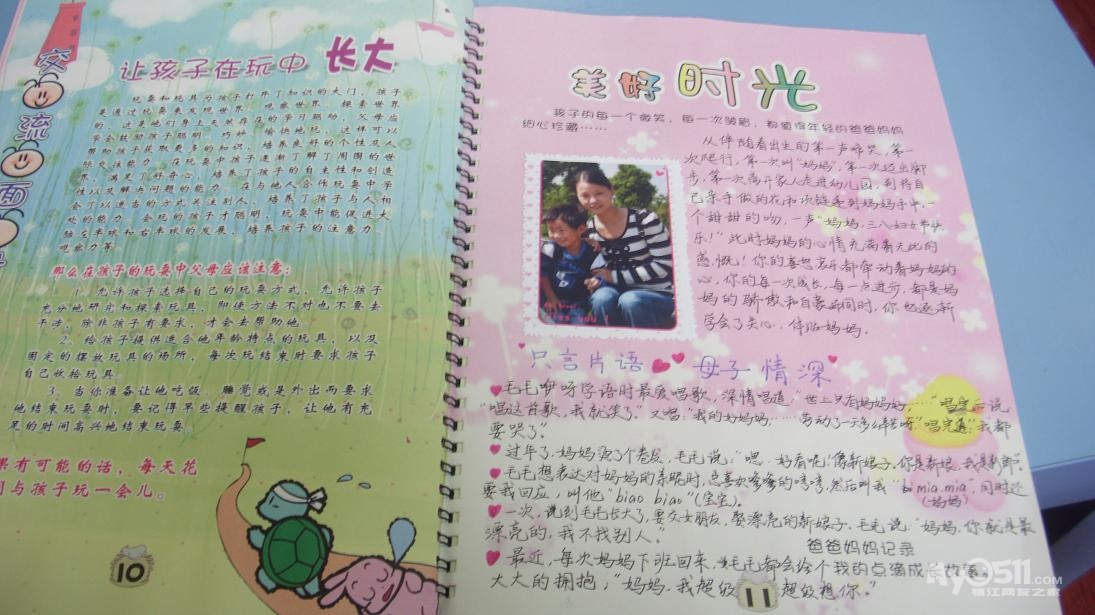 交流面
让孩子在玩中 长大
玩耍和玩具为孩子打开了知识的大门，孩子
是通过玩耍来发现世界、观察世界、探索世界
的，这是他们身上天然存在的学习驱动，父母应
学会鼓励孩子聪明、巧妙、愉快地玩，这样可以
帮助孩子获取更多的知识，培养良好的个性及人
际交往能力。在玩耍中孩子逐渐了解了周围的世
界，满足了好奇心，培养了孩子的自主性和创造
性以及解决问题的能力。在与他人合作玩耍中学
会了以适当的方式关注别人，培养了孩子与人相
处的能力。会玩的孩子才聪明，玩耍中能促进大
脑左半球和右半球的发展，培养孩子的注意力、
观察力等。
那么在孩子的玩耍中父母应该注意：
1、允许孩子选择自己的玩耍方式，允许孩子
充分地研究和探索玩具，即使方法不对也不要去
干涉，除非孩子有要求，才会去帮助他。
2、给孩子提供适合他年龄特点的玩具，以及
固定的摆放玩具的场所，每次玩结束时要求孩子
自己收拾玩具。
3、当你准备让他吃饭、睡觉或是外出而要求
他结束玩耍时，要记得早些提醒孩子，让他有充
足的时间高兴地结束玩耍。
果有可能的话，每天花
间与孩子玩一会儿。
10
美好时光
孩子的每一个微笑，每一次哭脸，都值得年轻的爸爸妈妈
细心珍藏……
从伴随着出生的第一声啼哭，第一
次爬行，第一次叫“妈妈”，第一次迈出脚
步，第一次离开家人走进幼儿园，到将自
己亲手做的花和项链送到妈妈手中，一
个甜甜的吻，一声“妈妈，三八妇女节快
乐！”此时妈妈的心情充满着无比的
感慨！你的喜怒哀乐都牵动着妈妈的
心，你的每一次成长，每一点进步，都是妈
妈的骄傲和自豪，同时，你也逐渐
学会了关心、体贴妈妈。
只言片语 母子情深
毛毛咿呀学语时最爱唱歌，深情唱道“世上只有妈妈好……”唱完后说
“唱这首歌，我就哭了”又唱：“我的好妈妈……劳动了一天多么辛苦呀”唱完道“我都
要哭了”。
过年了，妈妈烫了个卷发，毛毛说，“嗯，好看呢！像新娘子，你是新娘，我是新郎”。
毛毛想表达对妈妈的亲昵时，总喜欢嗲嗲的哼哼，然后叫我“mia mia”，同时还
要我回应，叫他“biao biao”（宝宝）。 （妈妈）
一次，说到毛毛长大了，要交女朋友，娶漂亮的新娘子，毛毛说“妈妈，你就是最
漂亮的，我不找别人”。
爸爸妈妈记录
最近，每次妈妈下班回来，毛毛都会给个
我的点滴成长故事
大大的拥抱，“妈妈，我超级 超级想你。”
11
my0511.com
镇江网友之家